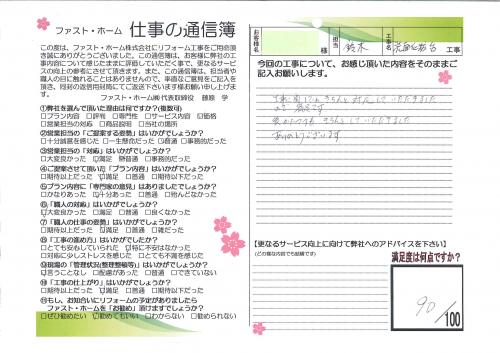 ファスト・ホーム 仕事の通信簿
この度は、ファスト・ホーム株式会社にリフォーム工事をご用命頂き誠にありがとうございました。この通信簿は、お客様に弊社の工事内容について感じたままに評価していただく事で、更なるサービスの向上の参考にさせて頂きます。また、この通信簿は、担当者や職人の目に触れることはありませんので、率直なご意見をご記入頂き、同封の返信用封筒にてご返送下さいます様お願い申し上げます。
ファスト・ホーム㈱ 代表取締役 藤原 学
①弊社を選んで頂いた理由は何ですか?(複数可)
□プラン内容 □評判 □専門性 □サービス内容 □価格
□営業担当の対応 □商品説明 □当社の場所
②営業担当の「ご提案する姿勢」はいかがでしょうか?
□十分誠意を感じた □一生懸命だった □普通 □事務的だった
③営業担当の「対応」はいかがでしょうか?
□大変良かった □満足 □普通 □事務的だった
④ご提案させて頂いた「プラン内容」はいかがでしょうか?
□期待以上だった □満足 □普通 □期待以下だった
⑤プラン内容に「専門家の意見」はありましたでしょうか?
□かなりあった □十分あった □普通 □殆んどなかった
⑥「職人の対応」はいかがでしょうか?
□大変良かった □満足 □普通 □良くなかった
⑦「職人の仕事の姿勢」はいかがでしょうか?
□期待以上だった □満足 □普通 □雑だった
⑧「工事の進め方」はいかがでしたか?
□とても安心していられた □特に不安はなかった
□対応に少しストレスを感じた □とても不満を感じた
⑨現場の「管理状況(整理整頓等)」はいかがでしょうか?
□言うことなし □配慮があった □普通 □できていない
⑩「工事の仕上がり」はいかがでしょうか?
□期待以上だった □満足 □普通 □期待以下だった
⑪もし、お知合いにリフォームの予定があましたらファスト・ホームを「お勧め」頂けますでしょうか?
□ぜひ勧めたい □勧めてもいい □わからない □勧められない
お客様名 様
担当 鈴木
工事名 洗面化粧台 工事
今回の工事について、お感じ頂いた内容をそのままご記入お願いします。
きちんと対応していただきました
ありがとうございます
【更なるサービス向上に向けて弊社へのアドバイスを下さい】
(どの様な内容でも結構です)
満足度は何点ですか?
90/100